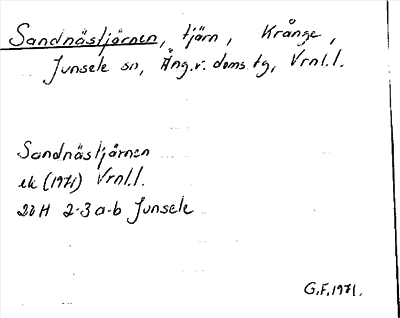 Sandnästjärnen, tjärn, Krånge,
Junsele sn, Ång.v. doms.tg, Vrnl.l.
Sandnästjärnen
ek (1971) Vrnl.l.
20H 2-3 a-b Junsele
G.F. 1971.